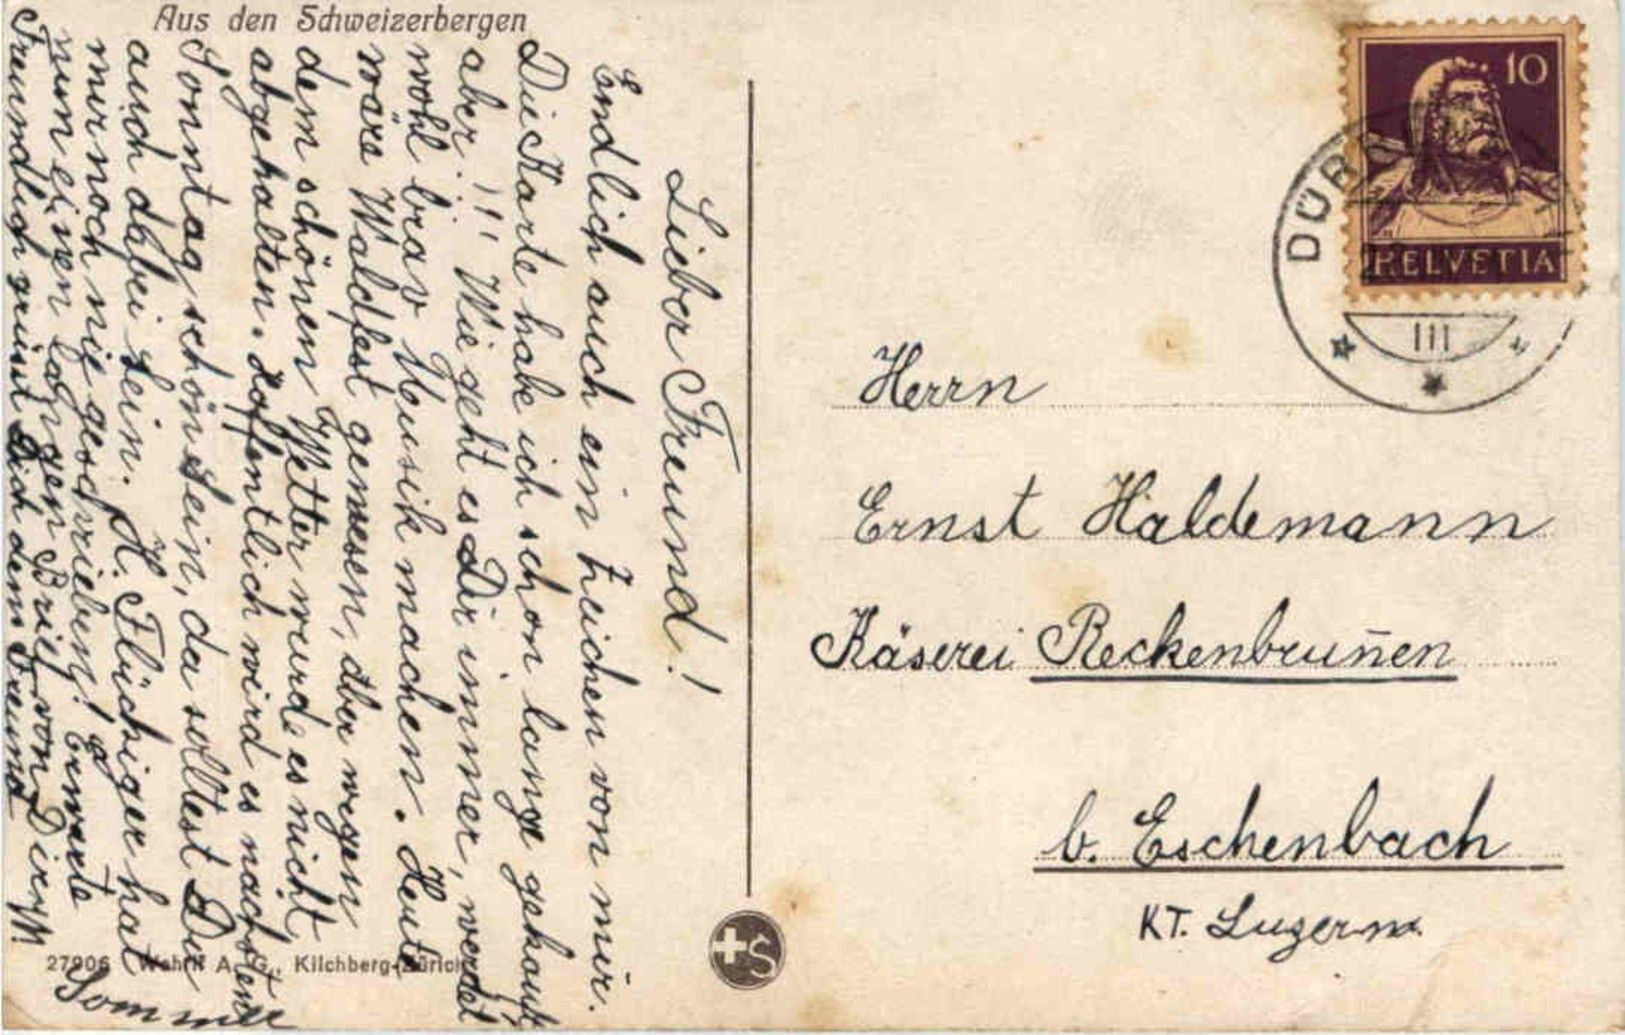 Aus den Schweizerbergen
Lieber Freund!
Endlich auch ein Zeichen von mir.
Die Karte habe ich schon lange gekauft,
aber !!! Wie geht es Dir immer, werdet
wohl brav Musik machen. Heute
wäre Waldfest gewesen, aber wegen
dem schönen Wetter wurde es nicht
abgehalten. Hoffentlich wird es nächsten
Sonntag schön sein, da solltest Du
auch dabei sein. H. Flückiger hat
mir noch nie geschrieben! Erwarte
nun einen langen Brief von Dir.
Freundlich grüsst Dich dein Freund
Sommer
27906 Wehrli A.-G., Kilchberg-Zürich
+S
10
HELVETIA
DÜR
III
Herrn
Ernst Haldemann
Käserei Reckenbrun̄en
b. Eschenbach
KT. Luzern.